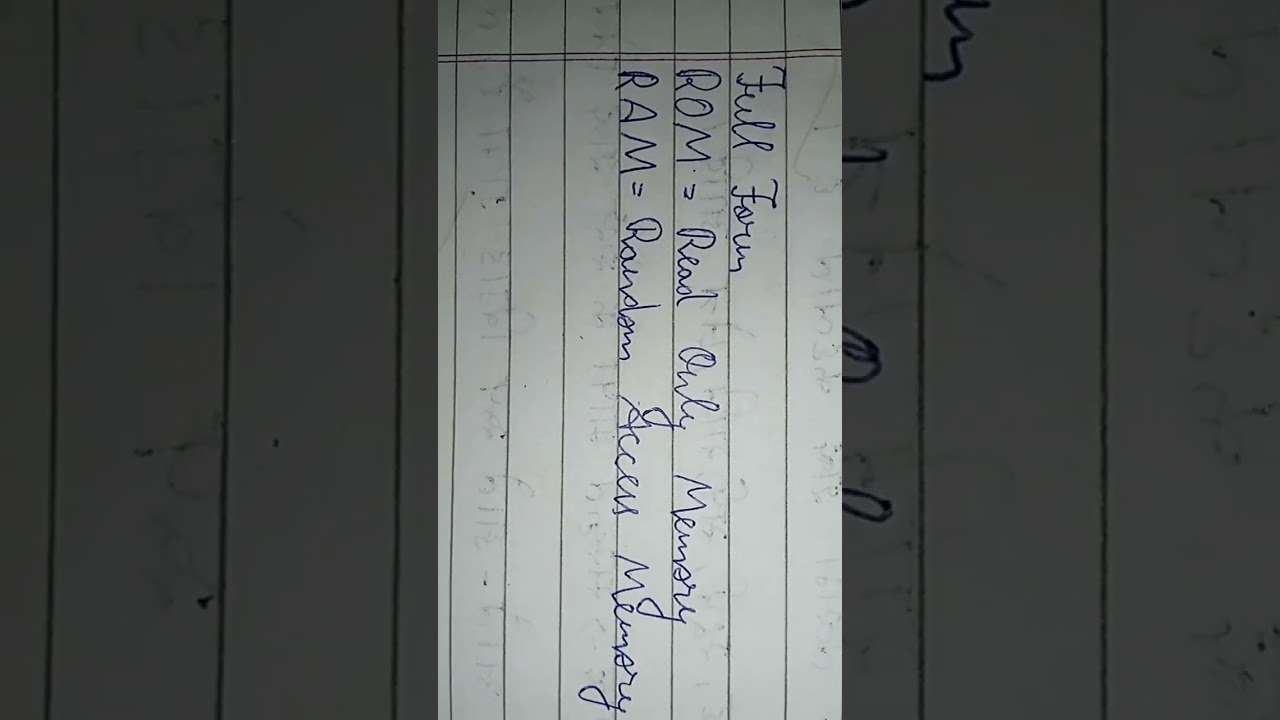 Full Form
ROM = Read Only Memory
RAM = Random Access Memory